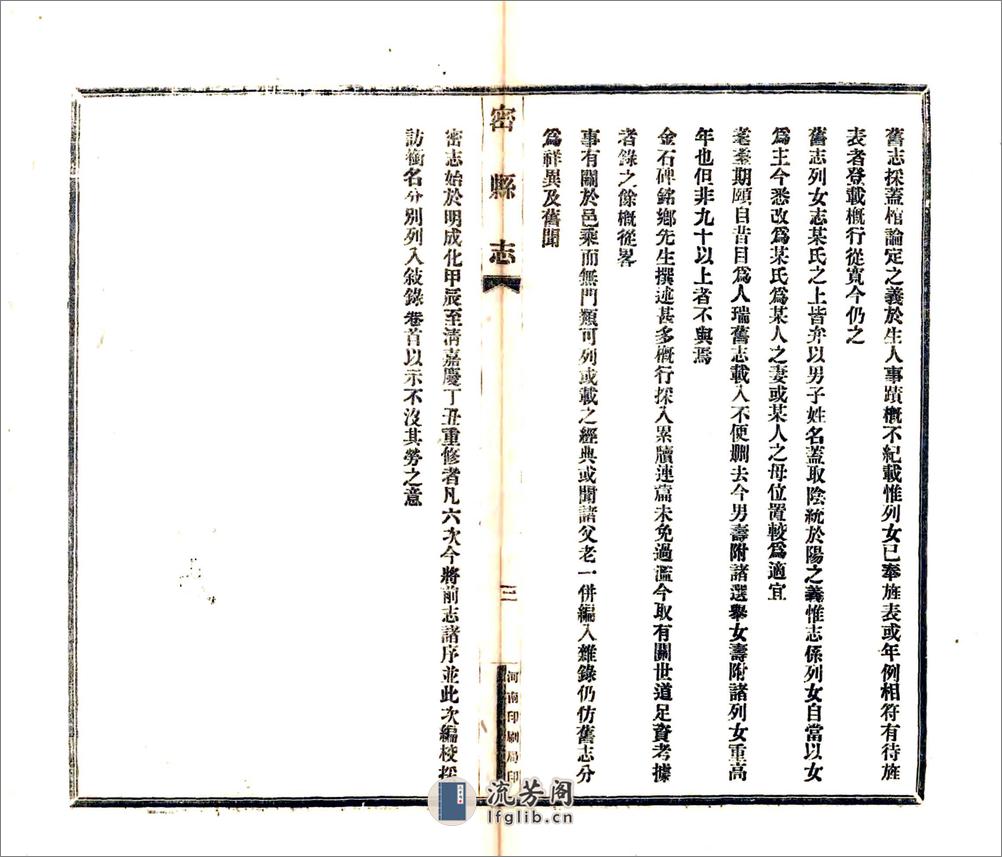 舊志採蓋棺論定之義於生人事蹟概不紀載惟列女已奉旌表或年例相符有待旌
表者登載概行從寬今仍之
舊志列女志某氏之上皆弁以男子姓名蓋取陰統於陽之義惟志係列女自當以女
爲主今悉改爲某氏爲某人之妻或某人之母位置較爲適宜
耄耋期頤自昔目爲人瑞舊志載入不便刪去今男壽附諸選舉女壽附諸列女重高
年也但非九十以上者不與焉
金石碑銘鄉先生撰述甚多概行採入累牘連篇未免過濫今取有關世道足資考據
者錄之餘概從畧
事有關於邑乘而無門類可列或載之經典或聞諸父老一併編入雜錄仍仿舊志分
爲祥異及舊聞
密縣志
三
河南印刷局印
密志始於明成化甲辰至清嘉慶丁丑重修者凡六次今將前志諸序並此次編校採
訪銜名分別列入敍錄卷首以示不沒其勞之意
流芳阁
lfglib.cn